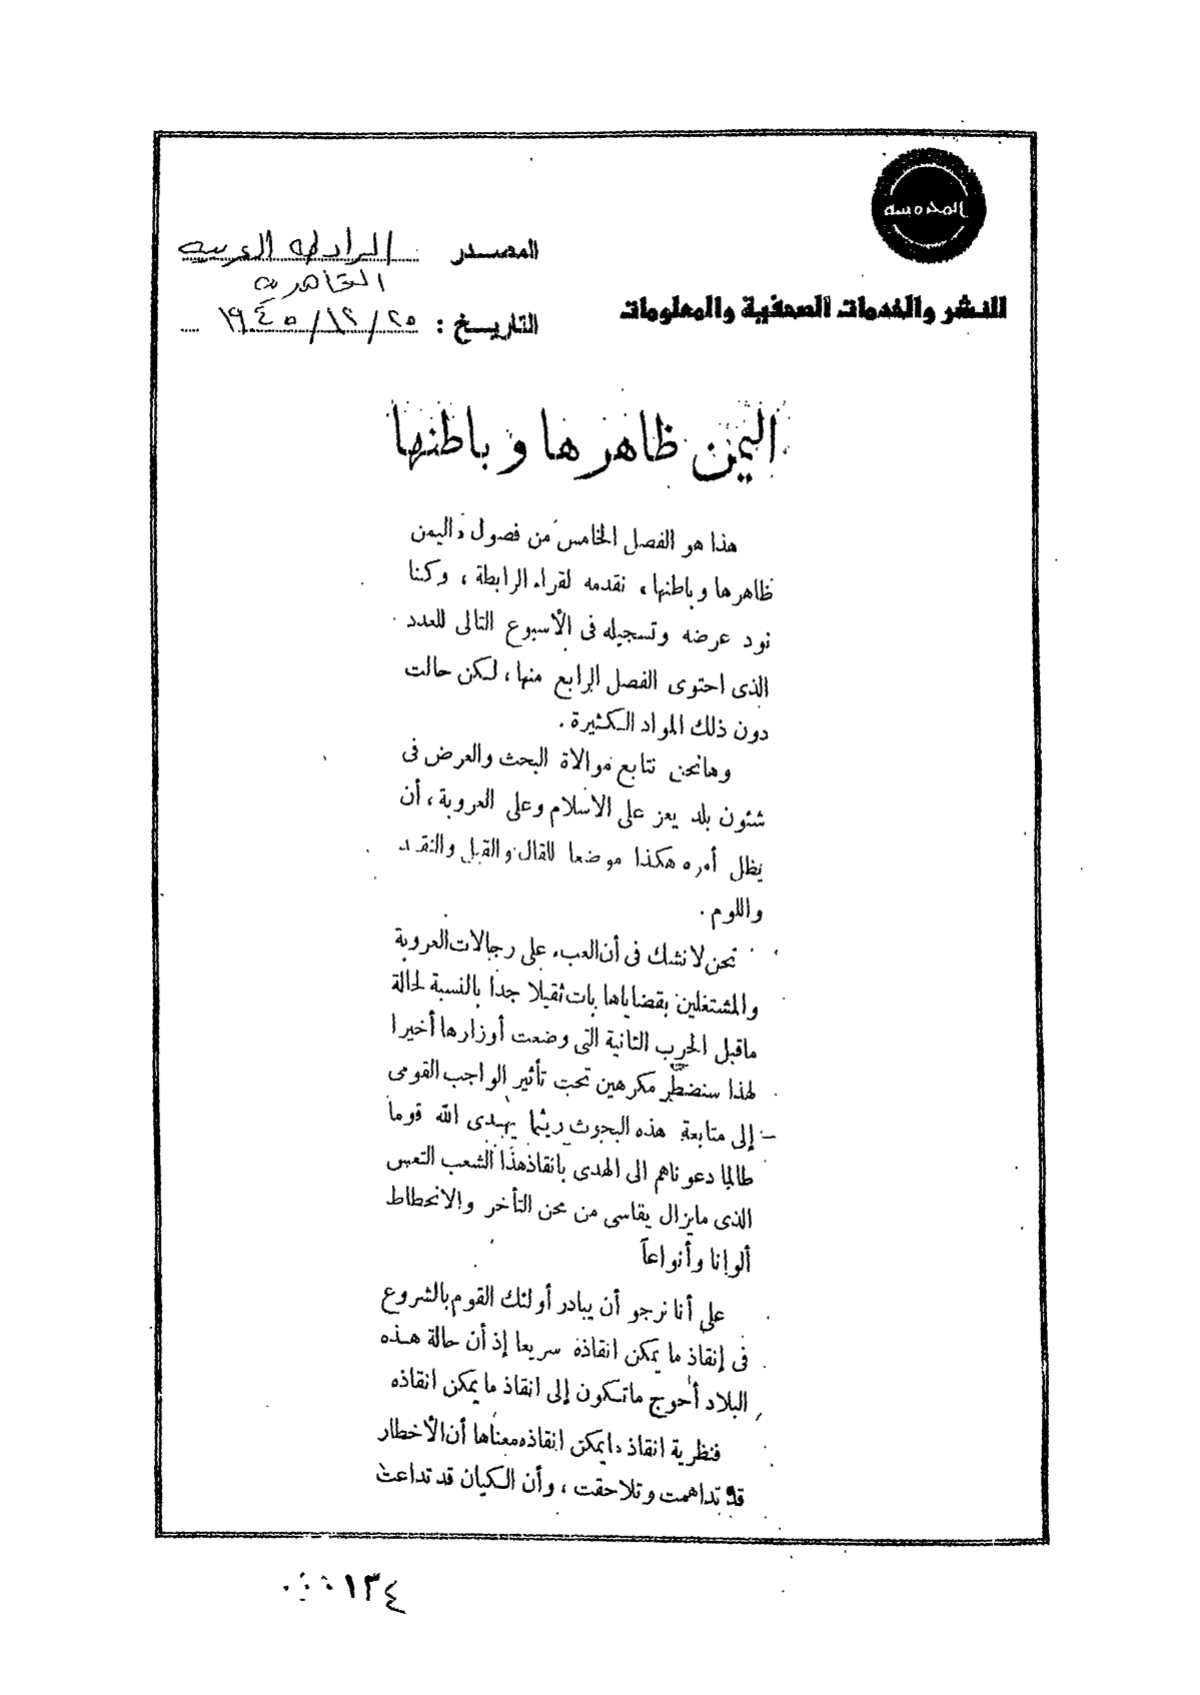 المحروسة
المصدر الرابطة العربية
القاهرية
للنشر والخدمات الصحفية والمعلومات
التاريخ : ٢٥/ ١٢/ ١٩٤٥
اليمن ظاهرها وباطنها
هذا هو الفصل الخامس من فصول « اليمن
ظاهرها وباطنها » نقدمه لقراء الرابطة ، وكنا
نود عرضه وتسجيله فى الأسبوع التالى للعدد
الذى احتوى الفصل الرابع منها ، لكن حالت
دون ذلك المواد الكثيرة .
وهانحن نتابع موالاة البحث والعرض فى
شئون بلد يعز على الاسلام وعلى العروبة ، أن
يظل أمره هكذا موضعا للقال والقيل والنقد
واللوم .
نحن لا نشك فى أن العبء على رجالات العروبة
والمشتغلين بقضاياها بات ثقيلا جدا بالنسبة لحالة
ماقبل الحرب الثانية التى وضعت أوزارها أخيرا
لهذا سنضطر مكرهين تحت تأثير الواجب القومى
إلى متابعة هذه البحوث ريثما يهدى الله قوما
طالما دعوناهم الى الهدى بانقاذ هذا الشعب التعس
الذى مايزال يقاسى من محن التأخر والانحطاط
ألوانا وأنواعاً
على أنا نرجو أن يبادر أولئك القوم بالشروع
فى إنقاذ ما يمكن انقاذه سريعا إذ أن حالة هذه
البلاد أحوج ماتكون إلى انقاذ ما يمكن انقاذه
فنظرية انقاذ مايمكن انقاذه معناها أن الأخطار
قد تداهمت وتلاحقت ، وأن الكيان قد تداعت
١٣٤